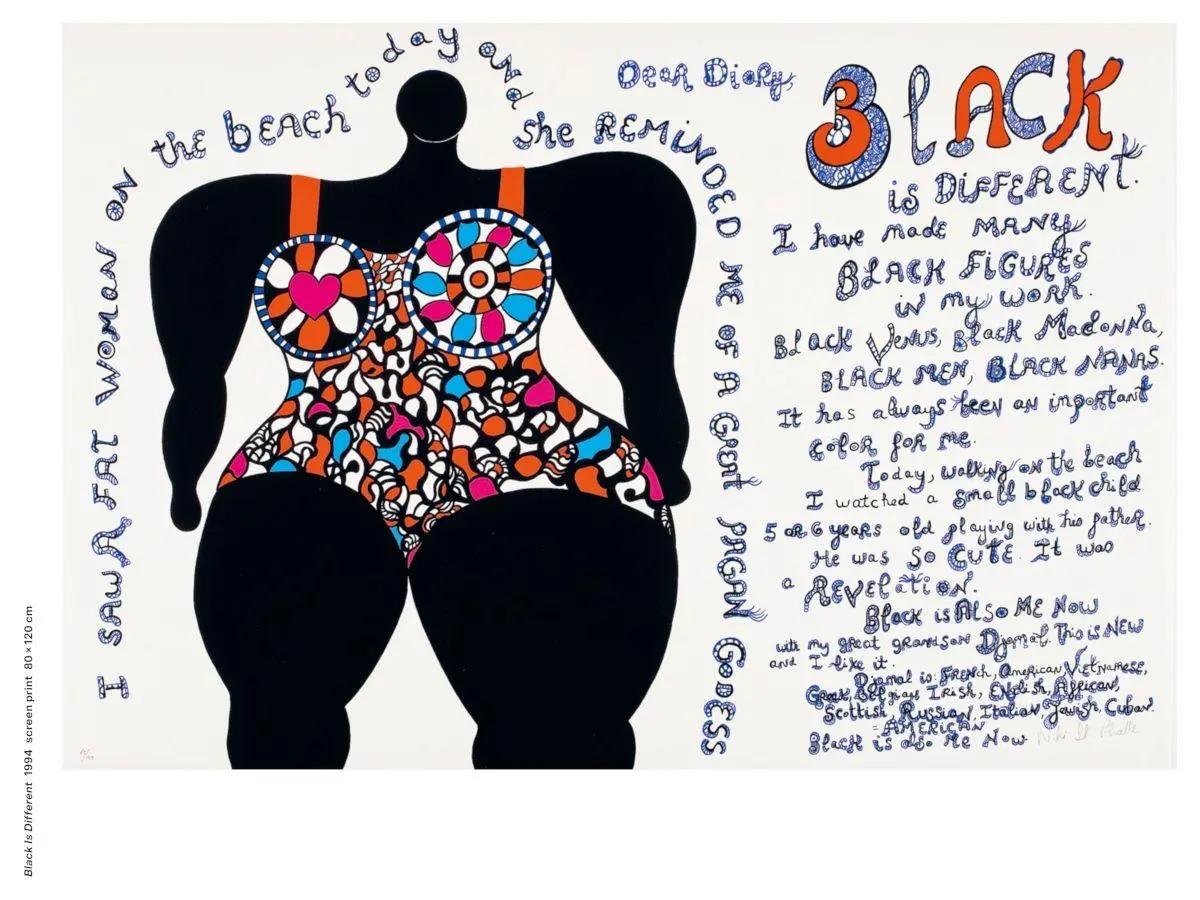 I SAW A FAT WOMAN ON the bEACH today and she REMINDED ME OF A GREAT PAGAN GODESS
Dear Diary,
BlACK
is DiFFERENT.
I have made MANY
BLACK FIGURES
in my WORK.
Black VENUS, Black Madonna,
BLACK MEN, BLACK NANAS.
It has always been an important
color for me.
Today, walking on the beach
I watched a small black child
5 or 6 years old playing with his father.
He was So CUTE. It was
a REVELATION.
Black is Also ME Now
with my great grandson Djamal. This is NEW
and I like it.
Djamal is: FRENCH, American, Vietnamese,
Greek, Belgian, IRISH, ENGLISH, AFRICAN,
Scottish, Russian, Italian, Jewish, Cuban.
= AMERICAN
Black is also Me Now
Niki de St Phalle
Black Is Different 1994 screen print 80 × 120 cm